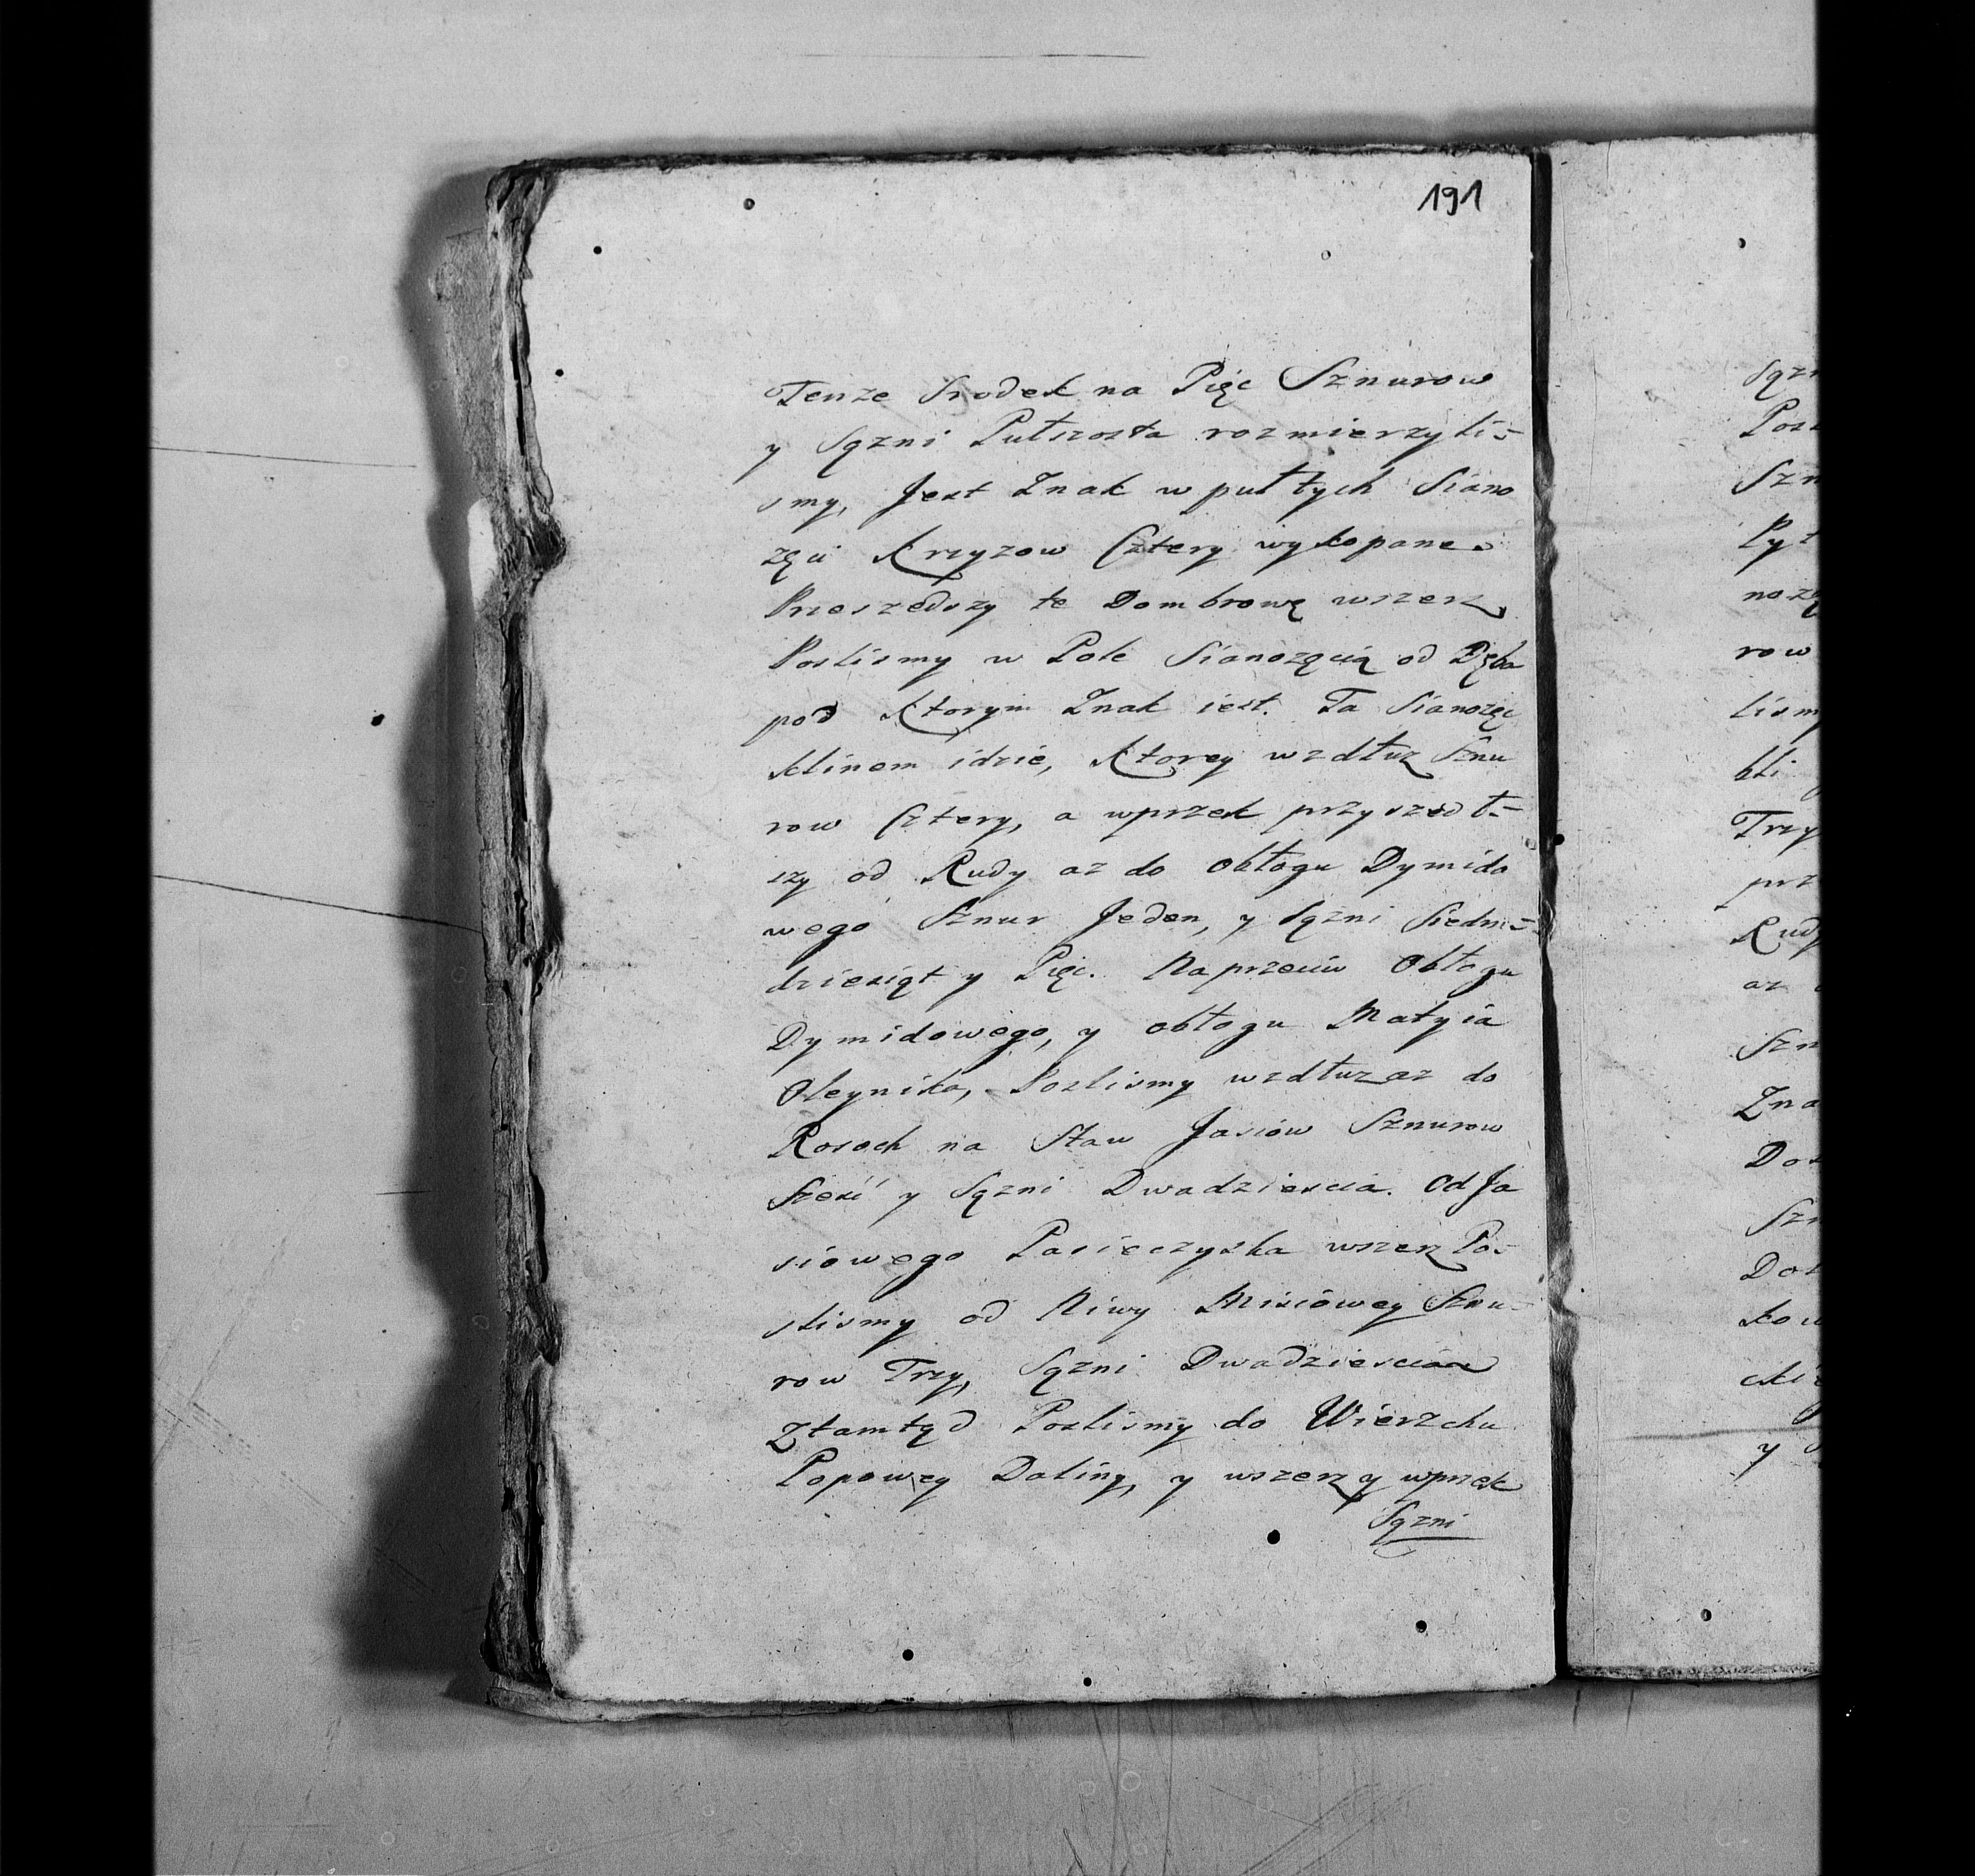 191
Tenze Srodek na Pięc Sznurow
y Sązni Pułszosta rozmierzyli=
smy, Jest Znak w puł tych Siano
zęci Krzyzow Cztery wykopane.
Przeszedszy te Dombrowę wszerz
Poslismy w Pole Sianozęcią od Dęba
pod Ktorym Znak iest. Ta Sianozęc
klinem idzie, Ktorey wzdłuz Sznu
row Cztery, a wprzek przyszedł=
szy od Rudy az do obłogu Dymido
wego Sznur Jeden, y Sązni Siedm=
dziesiąt y Pięc. Naprzeciw Obłogu
Dymidowego, y obłogu Matyia
Oleynika, Poslismy wzdłuz az do
Rosoch na Staw Jasiów Sznurow
Szesć y Sązni Dwadziescia. Od Ja
siowego Pasieczyska wszerz Po=
slismy od Niwy Misiówey Sznu=
row Trzy, Sązni Dwadziescia
Ztamtąd Poslismy do Wierzchu
Popowey Doliny, y wszerz y wprzek
Sązni
Sązn
Posz
Szn
Pyt
nozę
row
lism
bli
Trzy
prz
Rudy
az
Szn
Zna
Dos
Szn
Dol
kow
y